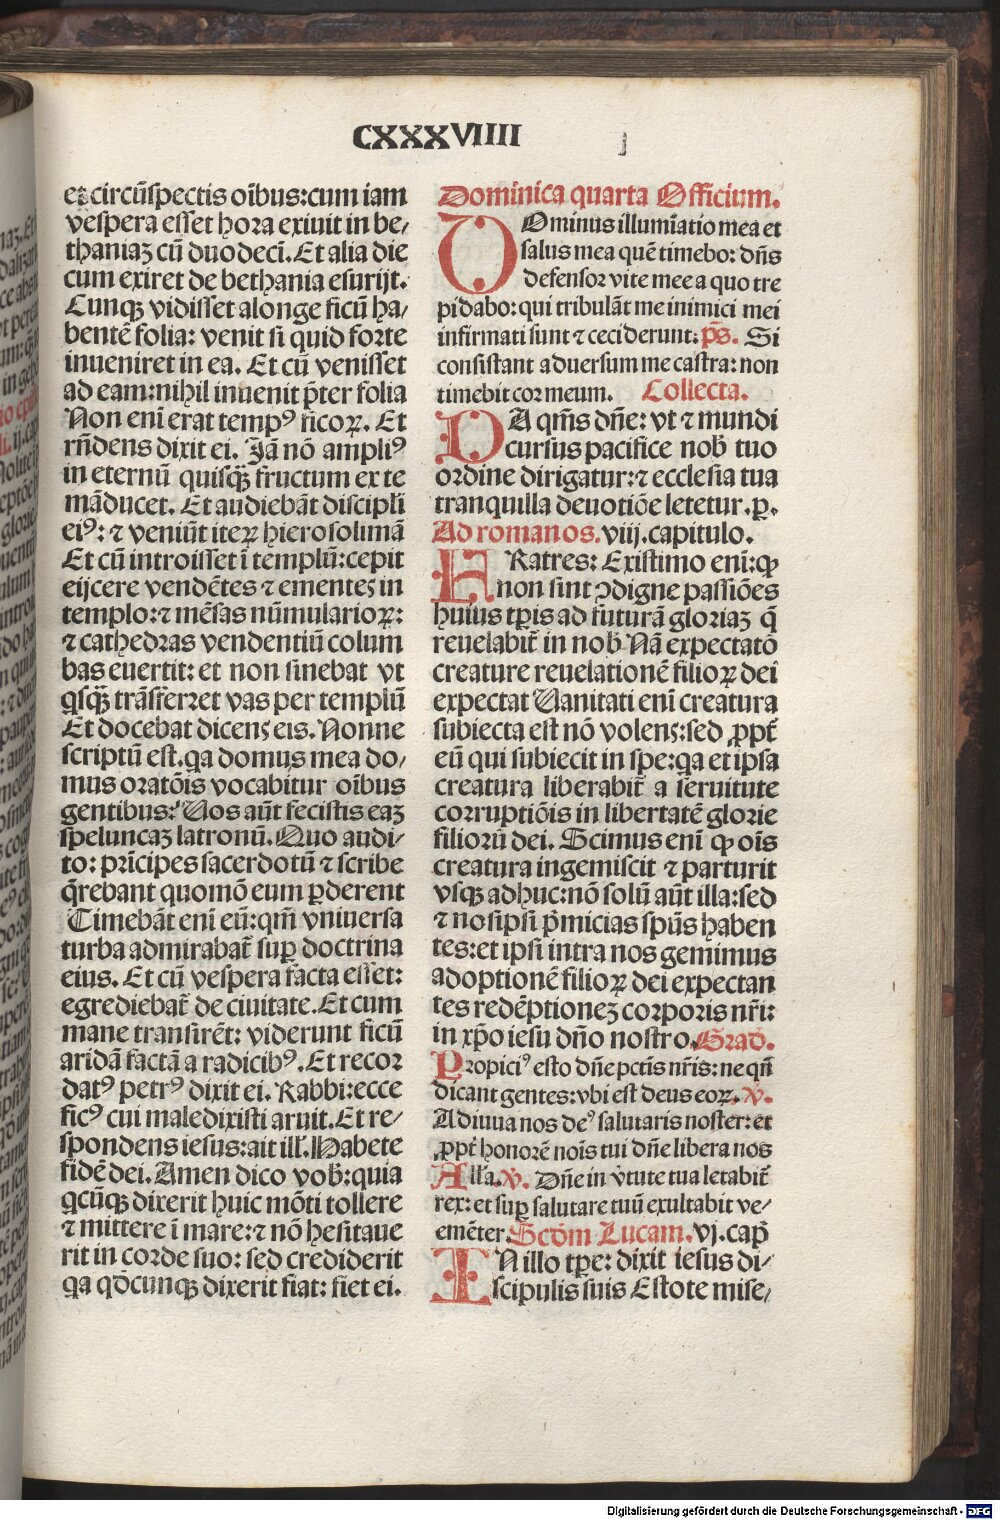 CXXXVIIII
et circūspectis oībus:cum iam
vespera esset hora exiuit in be/
thaniaꝫ cū duodecī. Et alia die
cum exiret de bethania esurijt.
Cunqꝫ vidisset alonge ficū ha/
bentē folia: venit si quid forte
inueniret in ea. Et cū venisset
ad eam:nihil inuenit p̄ter folia
Non enī erat tempꝰ ficoꝝ. Et
rn̄dens dixit ei. Jā nō ampliꝰ
in eternū quisqꝫ̄ fructum ex te
māducet. Et audiebāt disciplī
eiꝰ: ⁊ veniūt iteꝝ hierosolimā
Et cū introisset ī templū:cepit
eijcere vendētes ⁊ ementes in
templo:⁊ mēsas nūmularioꝝ:
⁊ cathedras vendentiū colum
bas euertit: et non sinebat vt
qsqꝫ̄ trāsferret vas per templū
Et docebat dicens eis. Nonne
scriptū est.qa domus mea do/
mus oratōis vocabitur oībus
gentibus: Uos aūt fecistis eaꝫ
speluncaꝫ latronū. Quo audi/
to: prīcipes sacerdotū ⁊ scribe
q̄rebant quomō eum ꝑderent
Timebāt enī eū:qm̄ vniuersa
turba admirabat᷑ suꝑ doctrina
eius. Et cū vespera facta esset:
egrediebat᷑ de ciuitate. Et cum
mane transirēt: viderunt ficū
aridā factā a radicibꝰ. Et recor
datꝰ petrꝰ dixit ei. Rabbi:ecce
ficꝰ cui maledixisti aruit. Et re/
spondens iesus:ait ill᷑. Habete
fidē dei. Amen dico vob̄: quia
qcūqꝫ dixerit huic mōti tollere
⁊ mittere ī mare:⁊ nō hesitaue
rit in corde suo: sed crediderit
qa qd̄cunqꝫ dixerit fiat: fiet ei.
Dominica quarta Officium.
DOminus illumīatio mea et
salus mea quē timebo: dn̄s
defensor vite mee a quo tre
pidabo: qui tribulāt me inimici mei
infirmati sunt ⁊ ceciderunt: ps̄. Si
consistant aduersum me castra: non
timebit cor meum. Collecta.
DA qm̄s dn̄e: vt ⁊ mundi
cursus pacifice nob̄ tuo
ordine dirigatur:⁊ ecclesia tua
tranquilla deuotiōe letetur. ꝑ.
Ad romanos. viij. capitulo.
FRatres: Existimo enī: ꝙ
non sint ↄdigne passiōes
huius tꝑis ad futurā gloriaꝫ q̄
reuelabit᷑ in nob̄ Nā expectatō
creature reuelationē filioꝝ dei
expectat Uanitati enī creatura
subiecta est nō volens:sed ꝓpt᷑
eū qui subiecit in spe:qa et ipsa
creatura liberabit᷑ a seruitute
corruptiōis in libertatē glorie
filiorū dei. Scimus enī ꝙ oīs
creatura ingemiscit ⁊ parturit
vsqꝫ adhuc:nō solū aūt illa:sed
⁊ nosipsi p̄micias spūs haben
tes:et ipsi intra nos gemimus
adoptionē filioꝝ dei expectan
tes redēptioneꝫ corporis nr̄i:
in xp̄o iesu dn̄o nostro. Grad̄.
Propiciꝰ esto dn̄e pctis nr̄is: ne qn̄
dicant gentes: vbi est deus eoꝝ. v̄.
Adiuua nos deꝰ salutaris noster: et
ꝓpt᷑ honorē nois tui dn̄e libera nos
All᷑a. v̄. Dn̄e in v̓tute tua letabit᷑
rex: et suꝑ salutare tuū exultabit ve/
emēter. Scd̄m Lucam. vj. cap̄
IN illo tꝑe: dixit iesus di/
scipulis suis Estote mise/
Digitalisierung gefördert durch die Deutsche Forschungsgemeinschaft - DFG